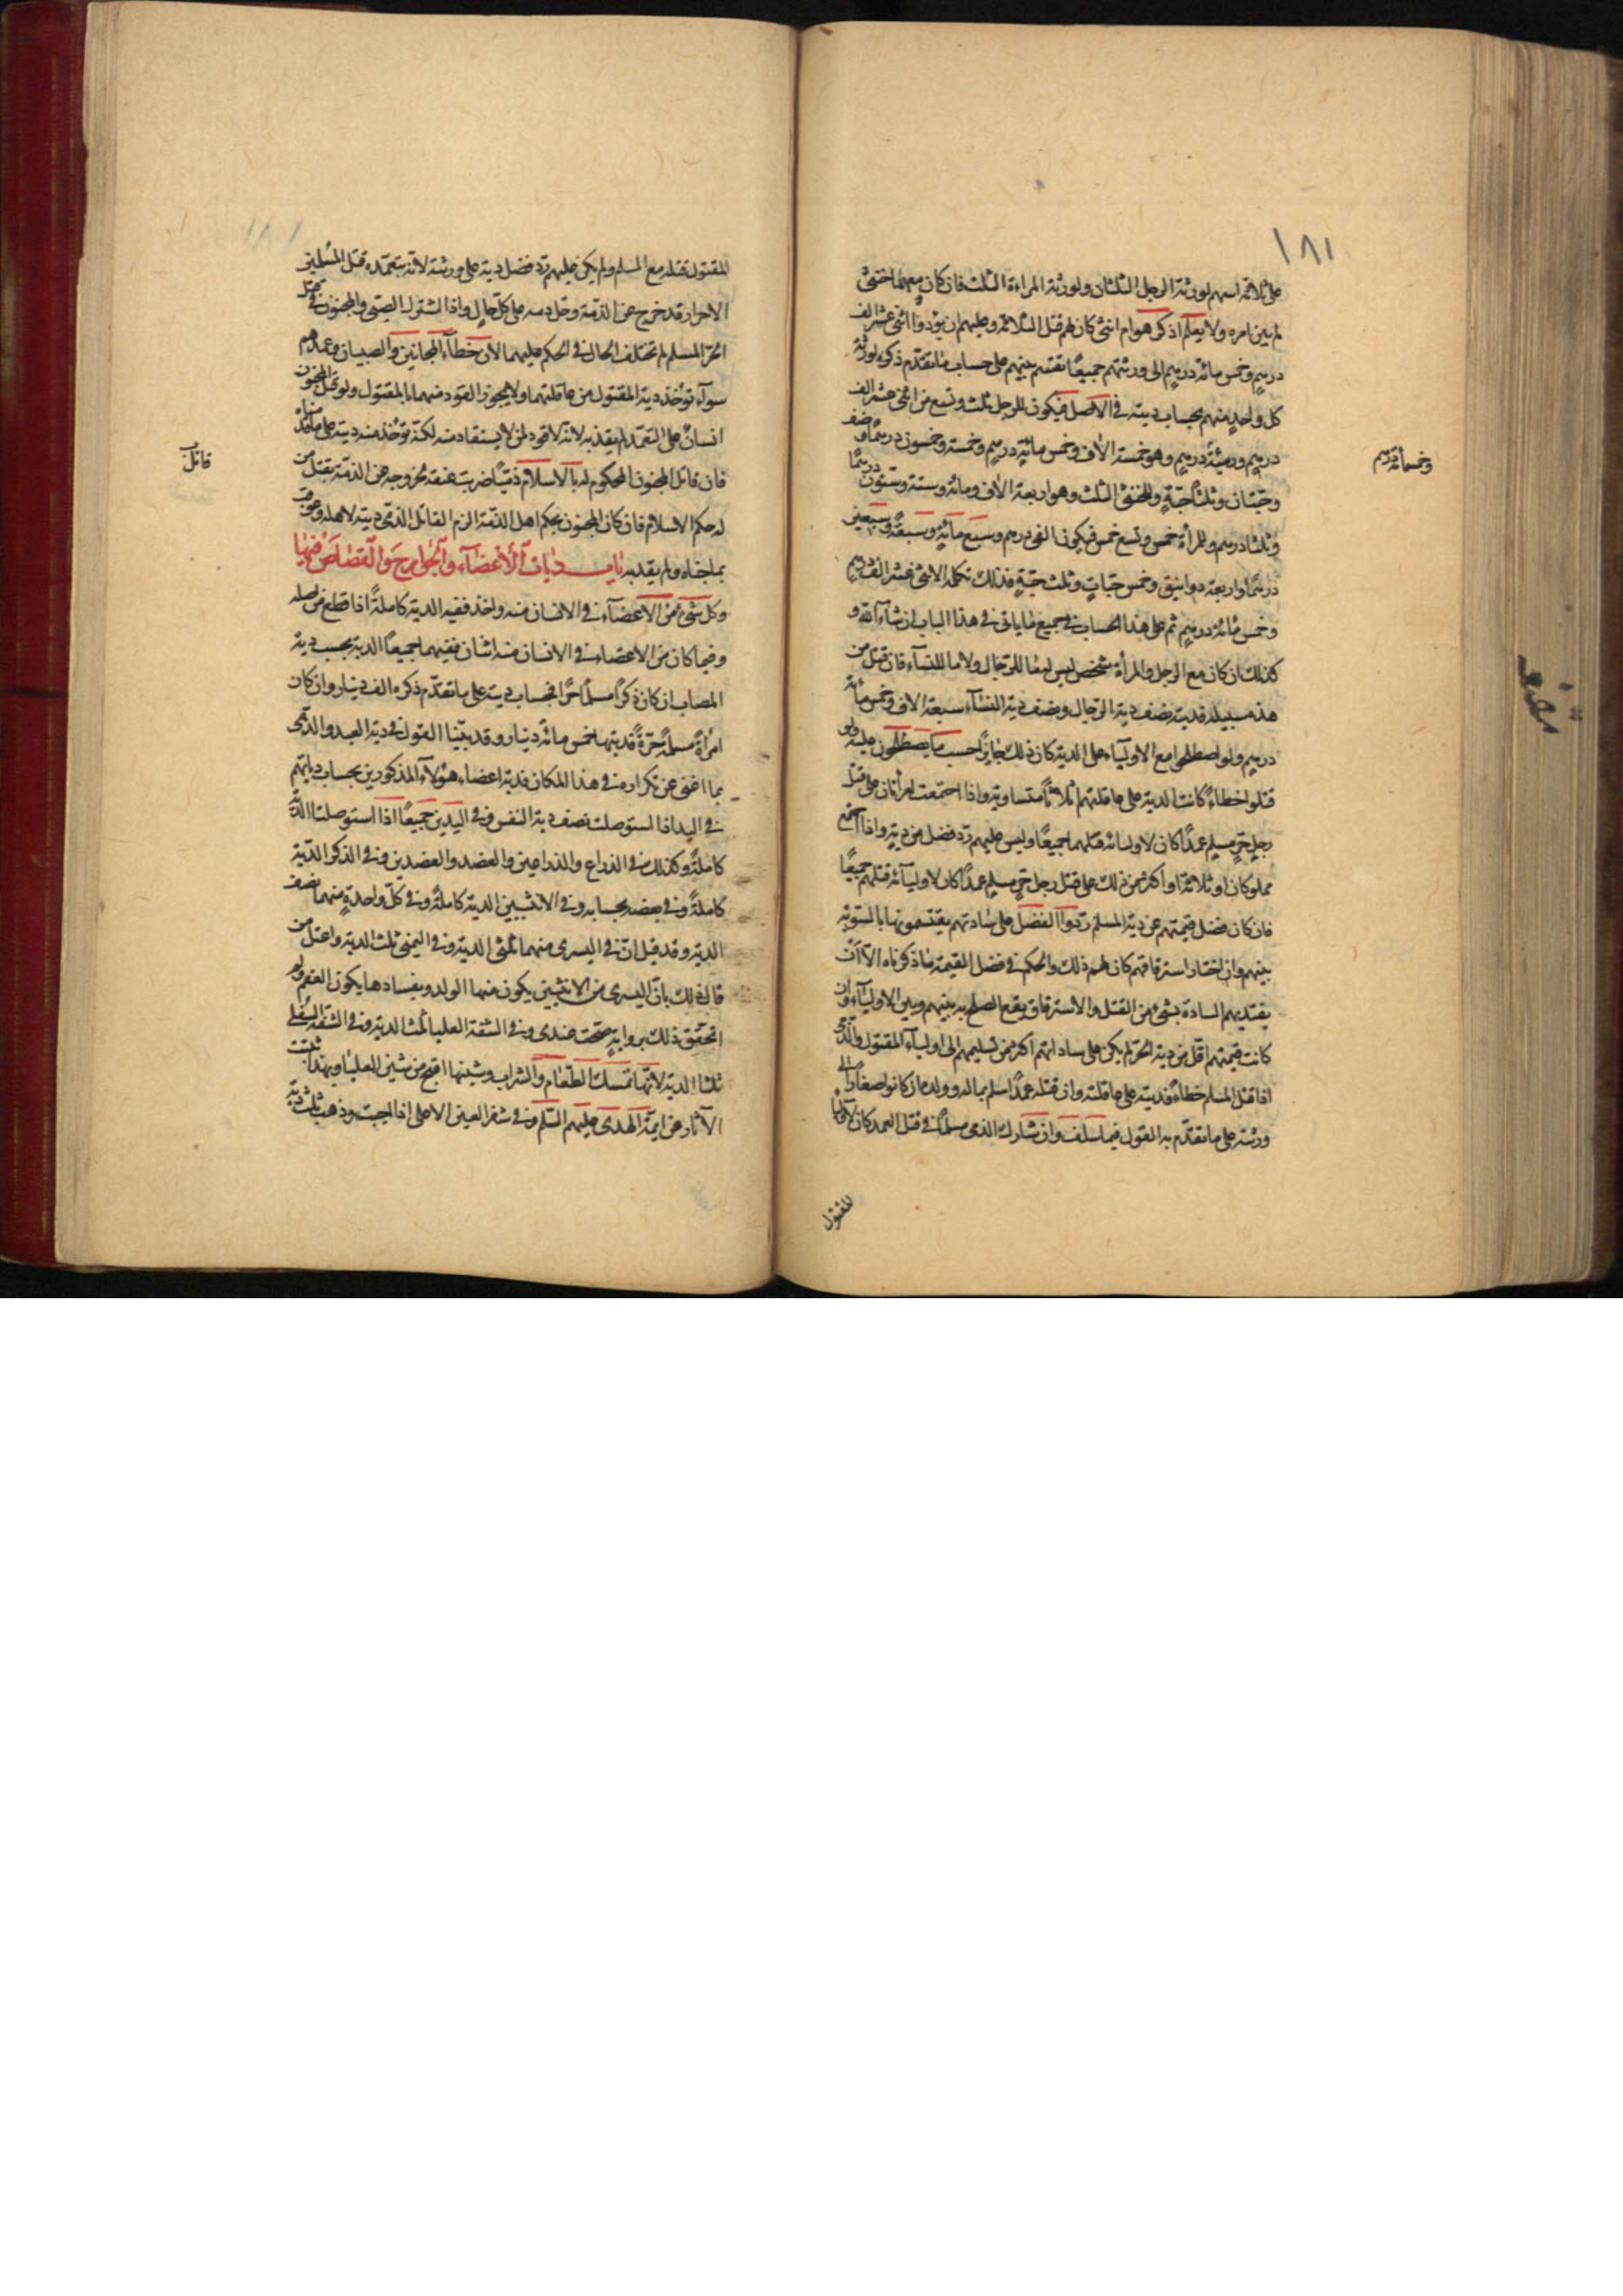 ١٨١
على ثلاثة اسهم لورثة الرجل الثلثان ولورثة المراءة الثلث فان كان معهما خنثى
لم يبن امره ولا يعلم اذكر هو ام انثى كان لهم قتل الثلاثة وعليهم ان يؤدوا اثنى عشر الف
درهم وخمس مائة درهم الى ورثتهم جميعًا تقسم بينهم على حساب ما تقدم ذكره لورثة
كل واحدٍ منهم بحساب ديته فى الاصل فيكون للرجل ثلث وتسع من اثنى عشر الف
درهم وخمسمائة درهم وهو خمسة الاف وخمس مائة درهم وخمسة وخمسون درهمًا ونصف
وخمسمائة درهم
وحبّتان وثلثا حبّةٍ وللخنثى الثلث وهو اربعة الاف ومائة وستة وستّون درهمًا
وثلثا درهم وللمرأة خمس وتسع خمس فيكون الفى درهم وسبع مائة وسبعة وسبعين
درهمًا واربعة دوانيق وخمس حبّاتٍ وثلث حبّةٍ فذلك تكملة الاثنى عشر الف درهم
وخمس مائة درهم ثم على هذا الحساب فى جميع ما ياتى فى هذا الباب ان شاء الله و
كذلك ان كان مع الرجل والمرأة شخص ليس له ما للرّجال ولا ما للنساء فان قتل من
هذه سبيله فديته نصف دية الرّجال ونصف دية النساء سبعة الاف وخمس مائة
درهم ولو اصطلحوا مع الاولياء على الدية كان ذلك جايزًا حسب ما يصطلحون عليه ولو
قتلوا خطاءً كانت الدية على عاقلتهم ثلاثًا متساوية واذا اجتمعت امرأتان على قتل
رجلٍ حرٍّ مسلمٍ عمدًا كان لاوليائه قتلهما جميعًا وليس عليهم ردّ فضل من ديةٍ واذا اجتمع
مملوكان او ثلاثة او اكثر من ذلك على قتل رجلٍ حرٍّ مسلمٍ عمدًا كان لاوليآئه قتلهم جميعًا
فان كان فضل قيمتهم عن دية المسلم ردّوا الفضل على سادتهم يقتسمونها بالسّويّة
بينهم وان اختار استرقاقهم كان لهم ذلك والحكم فى فضل القيمة ما ذكرناه الّا ان
يفتديهم السادة بشئ من القتل والاسترقاق ويقع الصلح به بينهم وبين الاوليآء وان
كانت قيمتهم اقل من دية الحرّ لم يكن على ساداتهم اكثر من تسليمهم الى اولياء المقتول والذّمى
اذا قتل المسلم خطاءً فديته على عاقلته وان قتله عمدًا اسلم بماله وولده ان كانوا صغارًا الى
ورثته على ما تقدّم به القول فيما سلف وان شارك الذمى مسلمًا فى قتل العمد كان لاولياء
للمقتول
المقتول قتله مع المسلم ولم يكن عليهم ردّ فضل ديته على ورثته لانّه بتعمّده قتل المسلمين
الاحرار قد خرج عن الذّمّة وحلّ دمه على كلّ حالٍ واذا اشترك الصبّى والمجنون فى قتل
الحرّ المسلم لم تختلف الحال فى الحكم عليهما لان خطآء المجانين والصبيان وعمدهم
سوآء تؤخذ دية المقتول من عاقلتهما ولا يجوز القود منهما بالمقتول ولو قتل المجنون
انسانٌ على التعمّد لم يقد به لانّه لا قود لمن لا يستقاد منه لكنّه تؤخذ منه ديته على ما قدّمناه
قاتل
فان قاتل المجنون المحكوم له بالاسلام ذمّيًّا ضربت عنقه لخروجه عن الذمّة بقتل من
له حكم الاسلام فان كان المجنون بحكم اهل الذّمّة الزم القاتل الذمّى ديته لاهله وعوقب
بما جناه ولم يقد به باب ديات الأعضآء والجوارح والقصاص فيها
وكل شئ من الاعضآء فى الانسان منه واحد ففيه الدية كاملةً اذا قطع من اصله
وفيما كان من الاعضاء فى الانسان منه اثنان ففيهما جميعًا الدية بحسب دية
المصاب ان كان ذكرًا مسلمًا حرًّا فحساب ديته على ما تقدّم ذكره الف دينار وان كان
امرأةً مسلمةً حرّةً فديتها خمس مائة دينار وقد بيّنّا القول فى دية العبد والذّمى
بما اغنى عن تكراره فى هذا المكان فدية اعضاء هؤلآء المذكورين بحساب دياتهم
فى اليد اذا استوصلت نصف دية النفس وفى اليدين جميعًا اذا استوصلتا الدّية
كاملةً وكذلك فى الذراع والذراعين والعضد والعضدين وفى الذكر الدّية
كاملةً وفى بعضه بحسابه وفى الانثيين الدية كاملةً وفى كلّ واحدةٍ منهما نصف
الدية وقد قيل انّ فى اليسرى منهما ثلثى الدية وفى اليمنى ثلث الدية واعتل من
قال ذلك بانّ اليسرى من الانثيين يكون منها الولد وبفسادها يكون العقم ولم
اتحقق ذلك برواية صحّت عندى وفى الشفة العليا ثلث الدية وفى الشفة السفلى
ثلثا الدية لانّها تمسك الطّعام والشراب وشينها اقبح من شين العليا وبهذا ثبتت
الآثار عن ايمّة الهدى عليهم السّلم وفى شفر العين الاعلى اذا اصيب وذهب ثلث دية